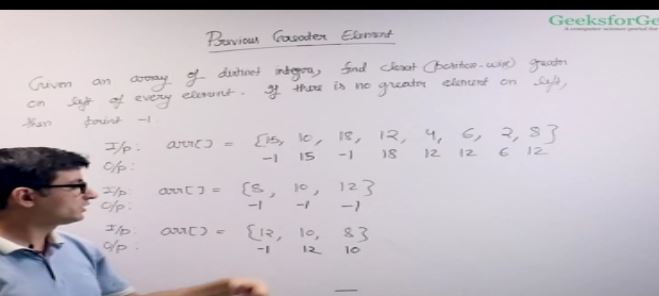 GeeksforGe
A computer science portal for
Previous Greater Element
Given an array of distinct integers, find closest (position-wise) greater
on left of every element. If there is no greater element on left,
then print -1.
I/p: arr[] = {15, 10, 18, 12, 4, 6, 2, 8}
O/p: -1 15 -1 18 12 12 6 12
I/p: arr[] = {8, 10, 12}
O/p: -1 -1 -1
I/p: arr[] = {12, 10, 8}
O/p: -1 12 10